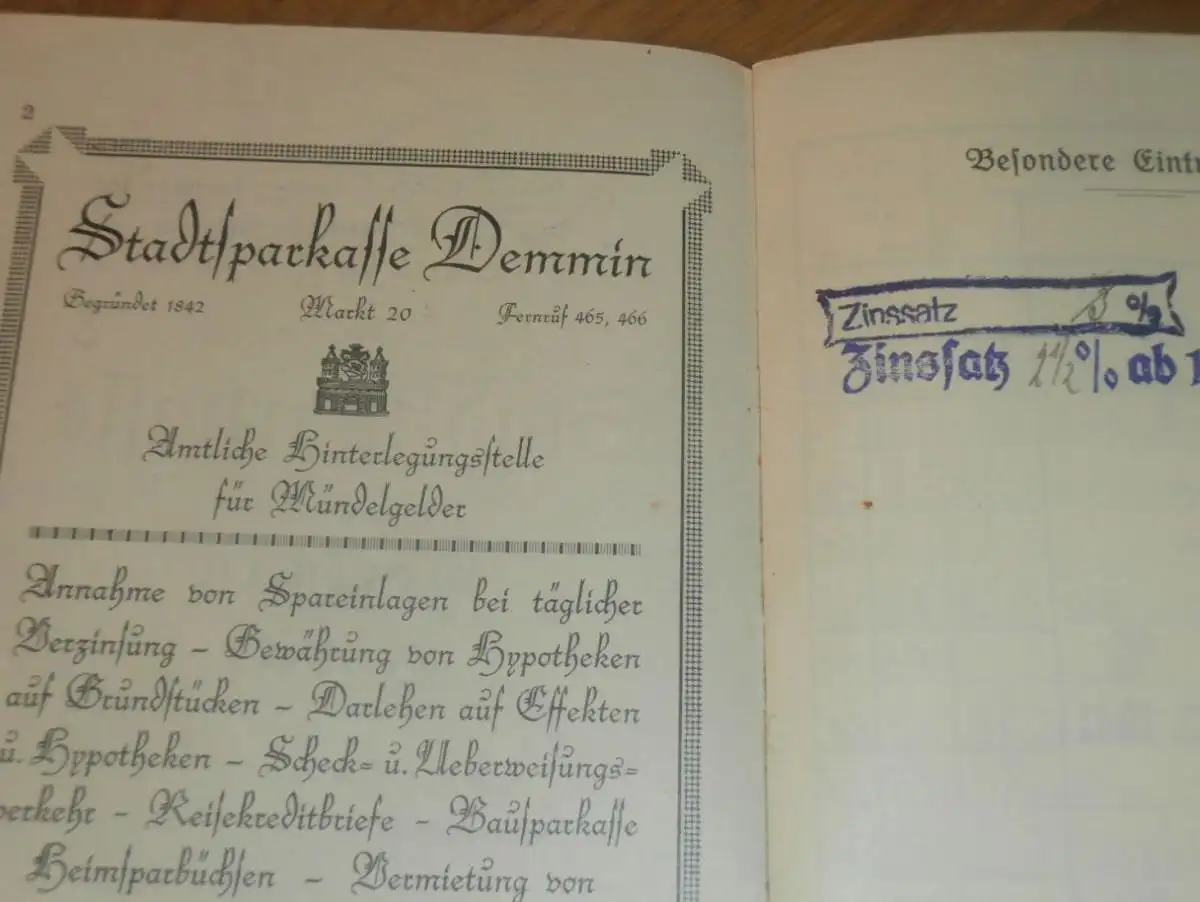 2
Stadtsparkasse Demmin
Begründet 1842 Markt 20 Fernruf 465, 466
Amtliche Hinterlegungsstelle
für Mündelgelder
Annahme von Spareinlagen bei täglicher
Verzinsung – Gewährung von Hypotheken
auf Grundstücken – Darlehen auf Effekten
u. Hypotheken – Scheck= u. Ueberweisungs=
verkehr – Reisekreditbriefe – Bausparkasse
Heimsparbüchsen – Vermietung von
Besondere Eintr
Zinssatz 3 %
Zinssatz 2 1/2 % ab 1